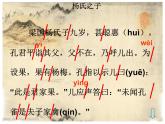 杨氏之子
梁国杨氏子九岁,甚聪惠(huì),
wèi
孔君平诣其父,父不在,乃呼儿出。为
设果,果有杨梅。孔指以示儿曰(yuē):
yīng
“此是君家果。”儿应声答曰:“未闻孔
雀是夫子家禽(qín)。”